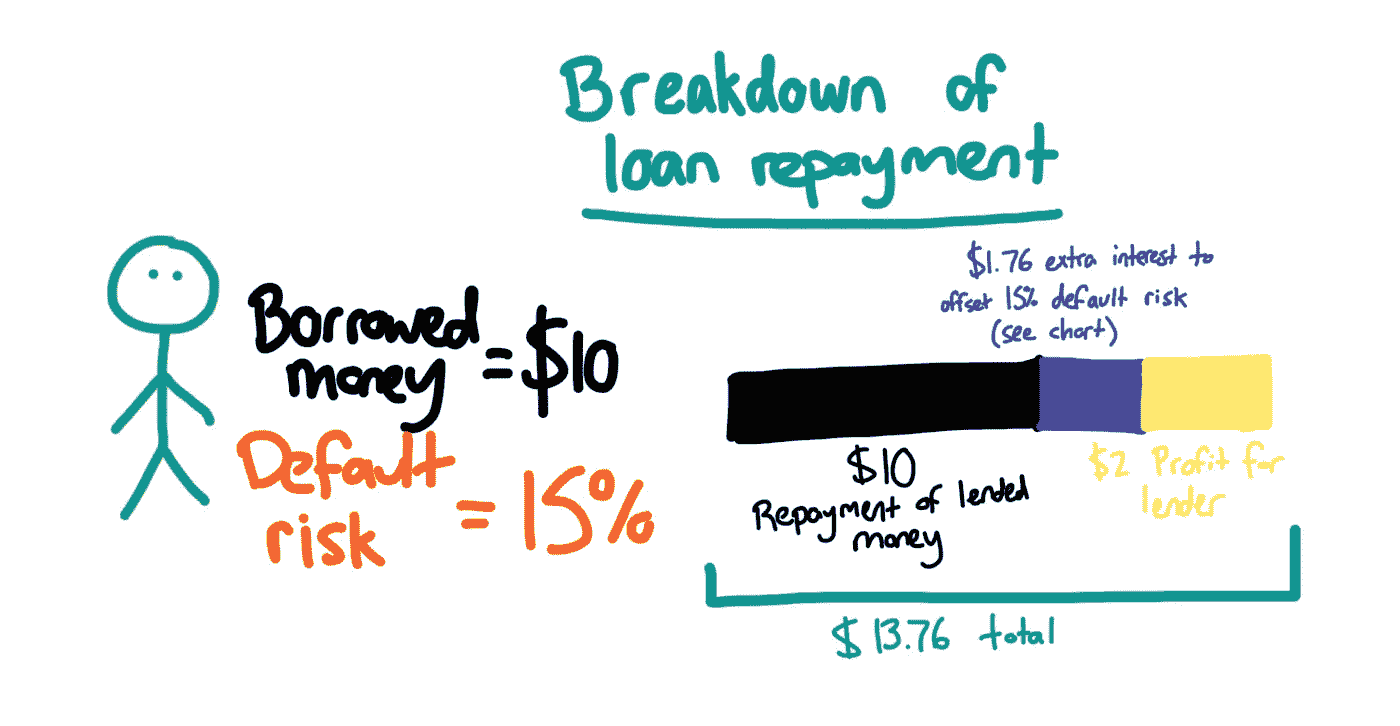 Breakdown of
loan repayment
Borrowed
money = $10
Default
risk = 15%
$1.76 extra interest to
offset 15% default risk
(see chart)
$10
Repayment of lended
money
$2 Profit for
lender
$13.76 total